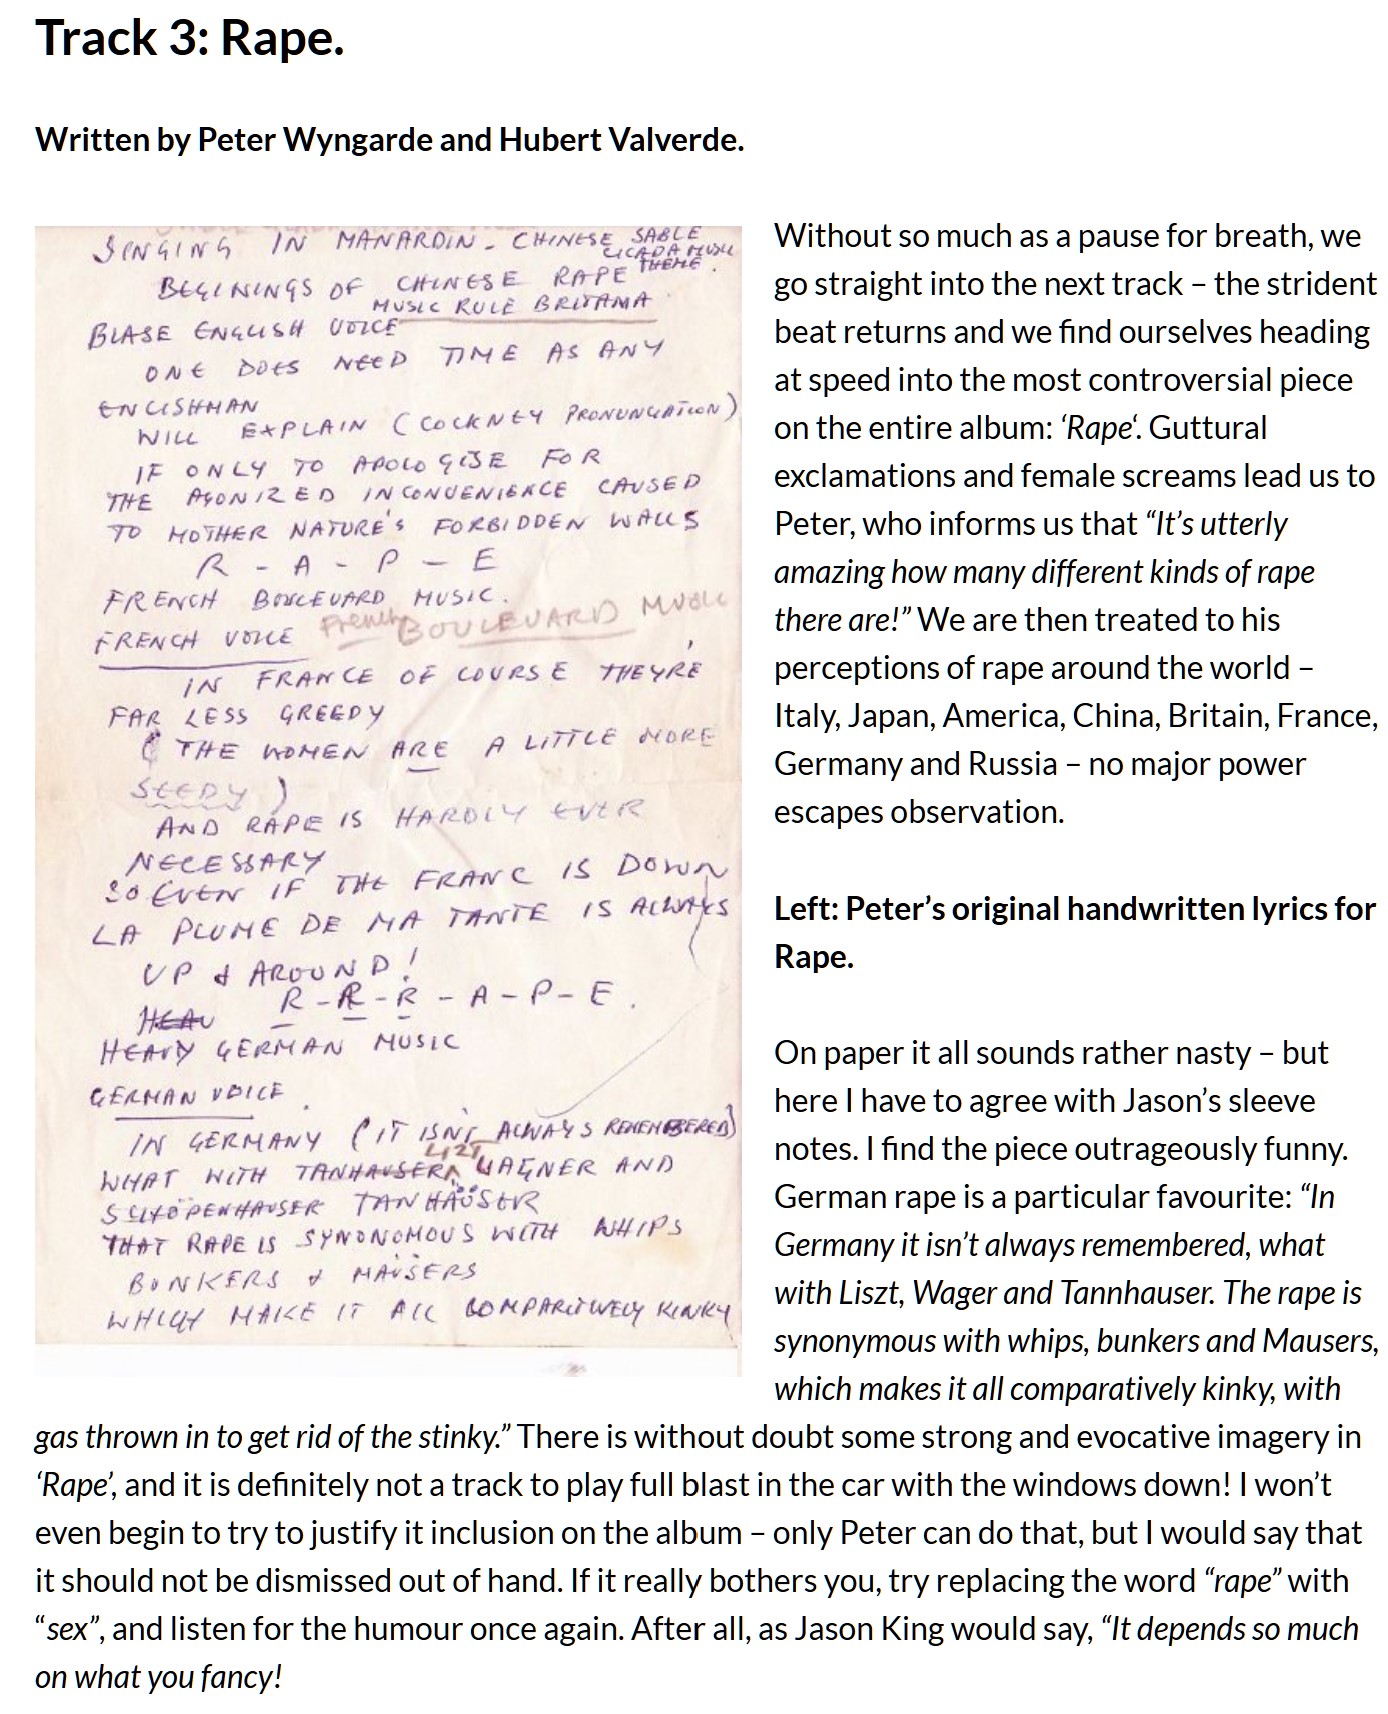 Track 3: Rape.
Written by Peter Wyngarde and Hubert Valverde.
SINGING IN MANARDIN - CHINESE SABLE
CICADA MUSIC
THEME.
BEGININGS OF CHINESE RAPE
MUSIC RULE BRITAMA
BLASE ENGLISH VOICE
ONE DOES NEED TIME AS ANY
ENGLISHMAN
WILL EXPLAIN (COCKNEY PRONUNCIATION)
IF ONLY TO APOLOGISE FOR
THE AGONIZED INCONVENIENCE CAUSED
TO MOTHER NATURE'S FORBIDDEN WALLS
R - A - P - E
FRENCH BOULEVARD MUSIC.
FRENCH VOICE French BOULEVARD MUSIC
IN FRANCE OF COURSE THEY'RE
FAR LESS GREEDY
( THE WOMEN ARE A LITTLE MORE
SEEDY )
AND RAPE IS HARDLY EVER
NECESSARY
SO EVEN IF THE FRANC IS DOWN
LA PLUME DE MA TANTE IS ALWAYS
UP & AROUND!
R - R - R - A - P - E.
HEAV
HEAVY GERMAN MUSIC
GERMAN VOICE.
IN GERMANY (IT ISN'T ALWAYS REMEMBERED)
LIZT
WHAT WITH TANHAUSER WAGNER AND
SCHÖPENHAUSER TANHAÜSER
THAT RAPE IS SYNONOMOUS WITH WHIPS
BUNKERS & MAÜSERS
WHICH MAKE IT ALL COMPARITIVELY KINKY
Without so much as a pause for breath, we
go straight into the next track – the strident
beat returns and we find ourselves heading
at speed into the most controversial piece
on the entire album: ‘Rape‘. Guttural
exclamations and female screams lead us to
Peter, who informs us that “It’s utterly
amazing how many different kinds of rape
there are!” We are then treated to his
perceptions of rape around the world –
Italy, Japan, America, China, Britain, France,
Germany and Russia – no major power
escapes observation.
Left: Peter’s original handwritten lyrics for
Rape.
On paper it all sounds rather nasty – but
here I have to agree with Jason’s sleeve
notes. I find the piece outrageously funny.
German rape is a particular favourite: “In
Germany it isn’t always remembered, what
with Liszt, Wager and Tannhauser. The rape is
synonymous with whips, bunkers and Mausers,
which makes it all comparatively kinky, with
gas thrown in to get rid of the stinky.” There is without doubt some strong and evocative imagery in
‘Rape’, and it is definitely not a track to play full blast in the car with the windows down! I won’t
even begin to try to justify it inclusion on the album – only Peter can do that, but I would say that
it should not be dismissed out of hand. If it really bothers you, try replacing the word “rape” with
“sex”, and listen for the humour once again. After all, as Jason King would say, “It depends so much
on what you fancy!